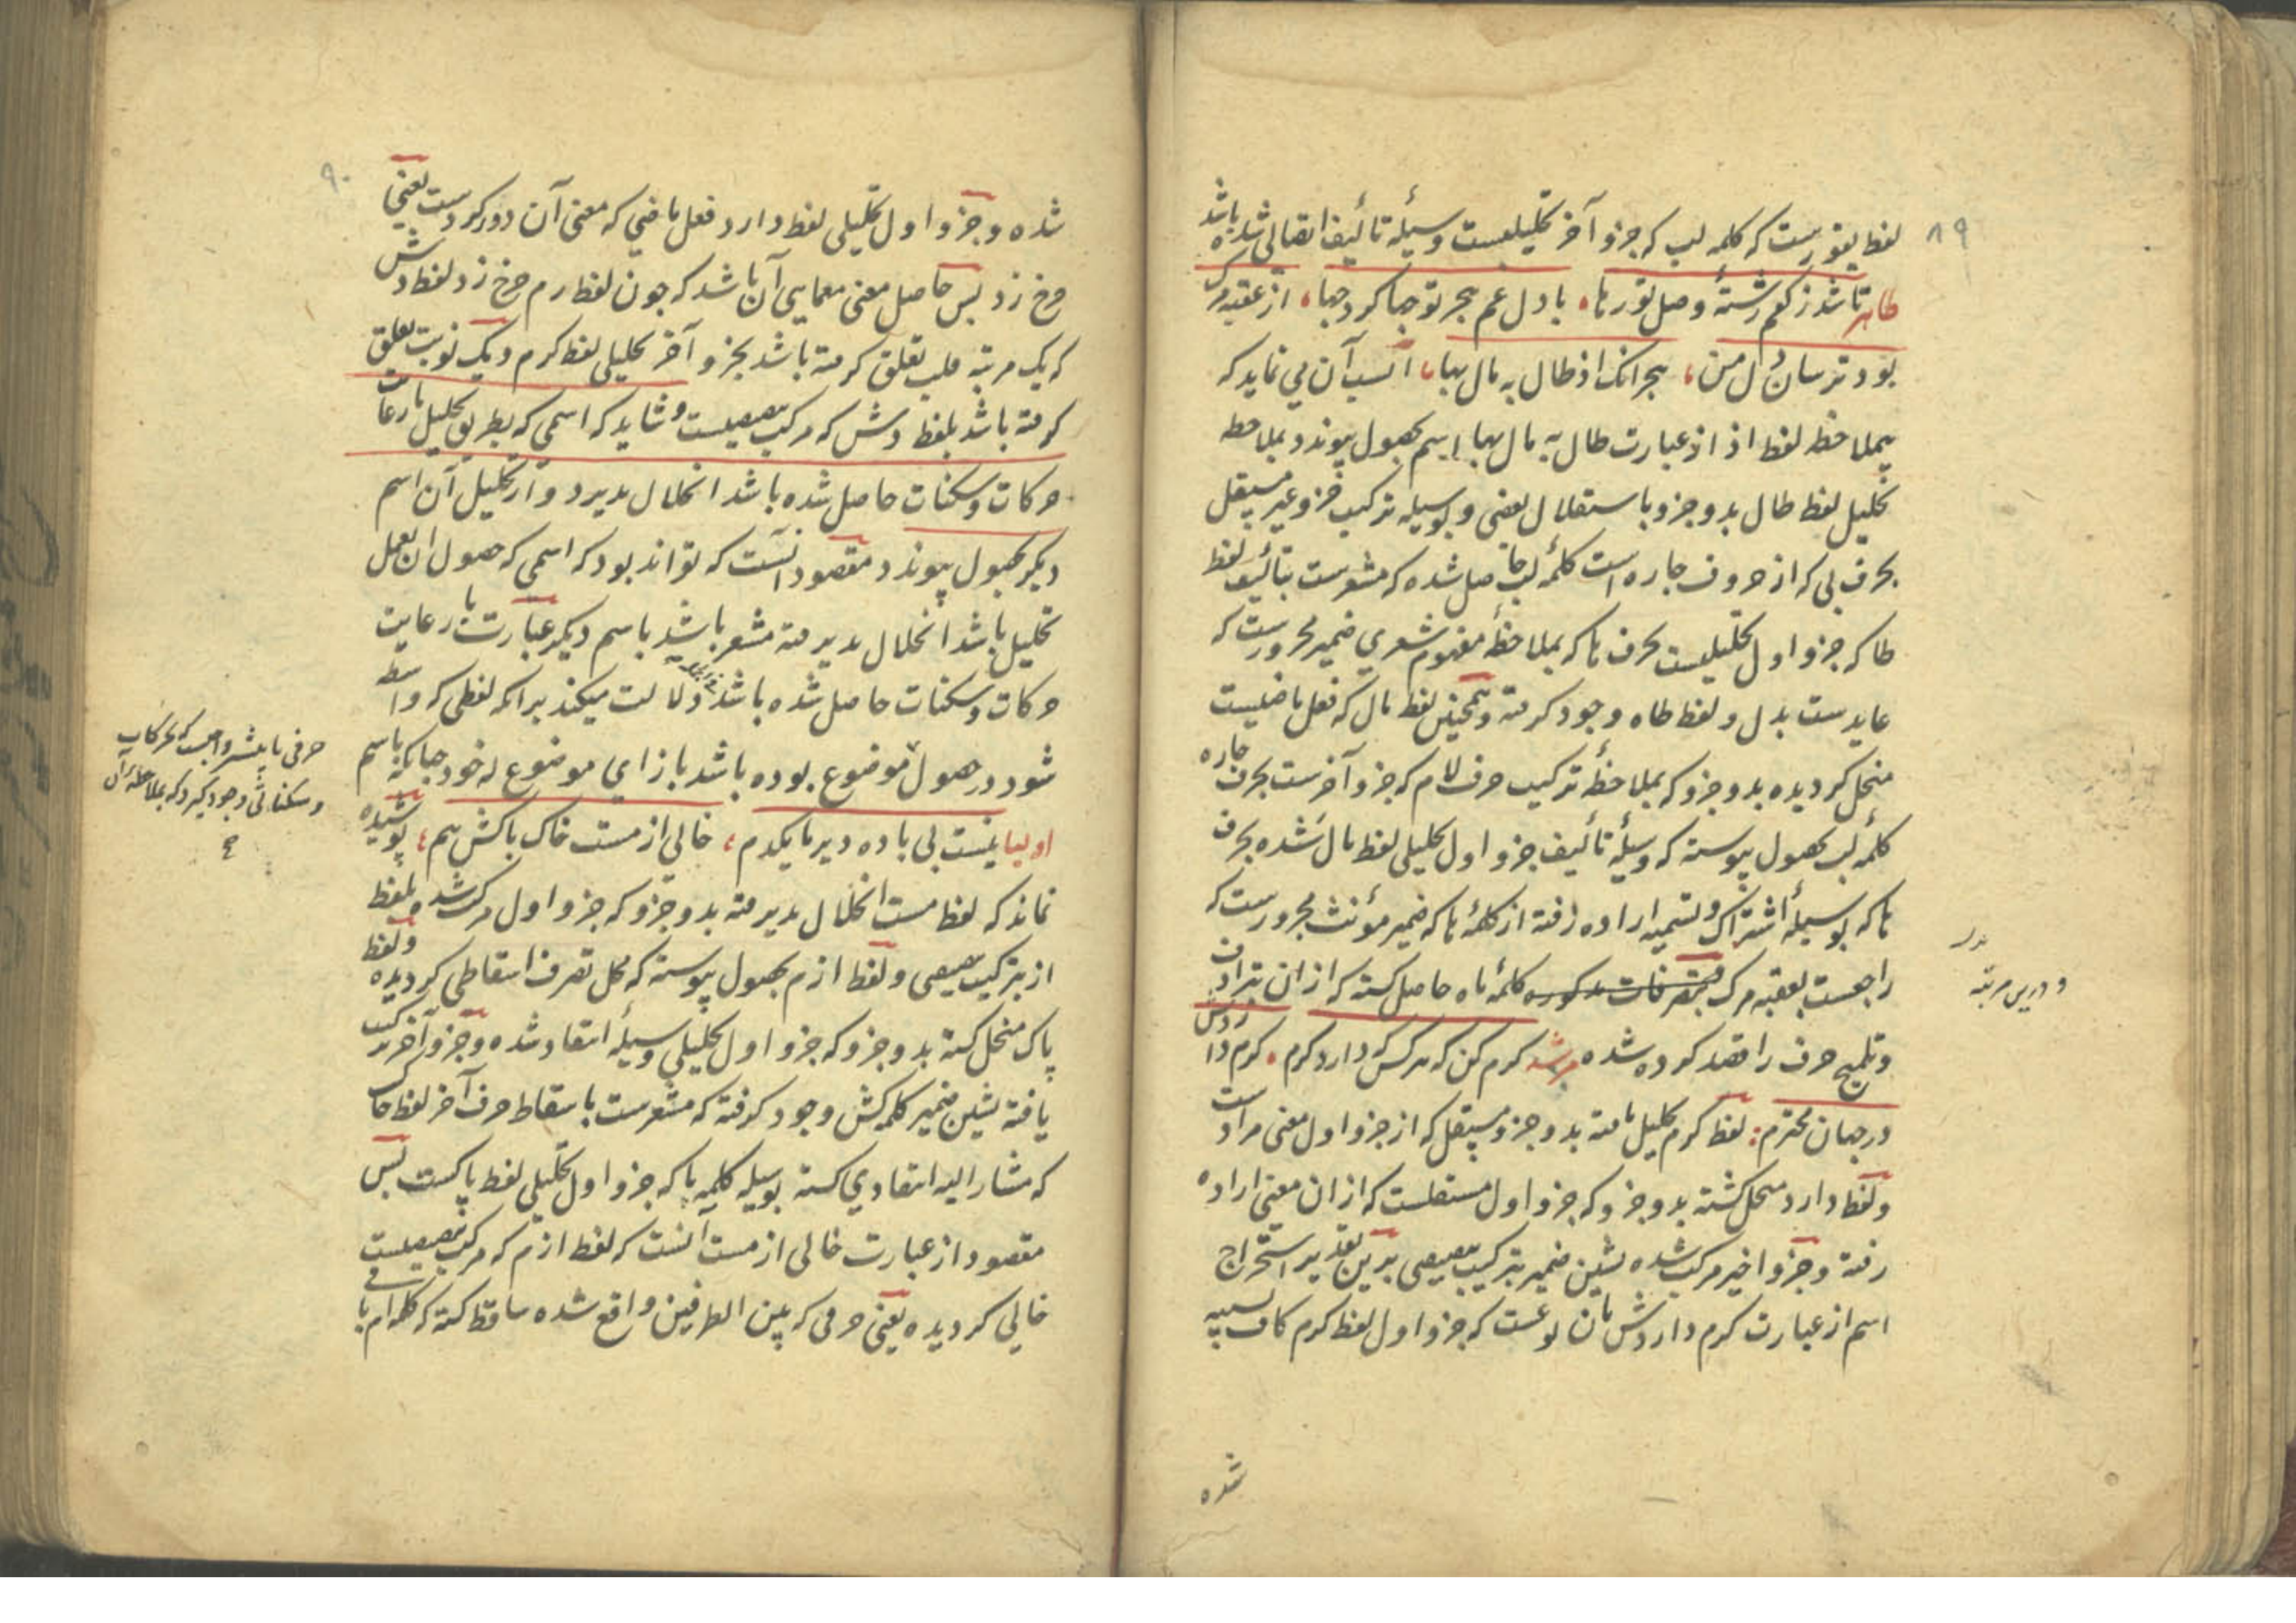 ٨٩
لفظ یغورست که کلمه لب که جزو آخر تحلیلیست وسیلهٔ تألیف اتصالی شده باشد
طاهر تا شد ز کفم رشتهٔ وصل تو رها، با دل غم هجر تو جها کرد جها، از عقبهٔ مرک
بود ترسان دل من، هجرانک اذ طال به مال بها، انسب آن می نماید که
بملاحظه لفظ اذ از عبارت طال به مال بها اسم بحصول پیوندد بملاحظه
تحلیل لفظ طال بدو جزو باستقلال بعضی و بوسیله ترکیب جزو غیر مستقل
بحرف بی که از حروف جاره است کلمهٔ لب حاصل شده که مشعرست بتألیف لفظ
طا که جزو اول تحلیلیست بحرف ها که بملاحظهٔ مفهوم شعری ضمیر مجرورست که
عایدست بدل و لفظ طاه وجود گرفته و همچنین لفظ مال که فعل ماضیست
منحل گردیده بدو جزو که بملاحظهٔ ترکیب حرف لام که جزو آخرست بحرف جاره
کلمهٔ لب بحصول پیوسته که وسیلهٔ تألیف جزو اول تحلیلی لفظ مال شده بحرف
ها که بوسیلهٔ اشتراک و تسمیه اراده رفته از کلمهٔ ها که ضمیر مؤنث مجرورست که
راجعست بعقبه مرک بتصرفات مذکوره کلمهٔ ماه حاصل کشته که از ان بترادف
و درین مرتبه
و تلمیح حرف را قصد کرده شده مرشد کرم کن که هرکس که دارد کرم، کرم داردش
در جهان محترم: لفظ کرم تحلیل یافته بدو جزو مستقل که از جزو اول معنی مرادست
و لفظ دارد منحل گشته بدو جزو که جزو اول مستقلست که از ان معنی اراده
رفته و جزو اخیر مرکب شده بشین ضمیر بترکیب تبعیضی برین تقدیر استخراج
اسم از عبارت کرم داردش بان نوعست که جزو اول لفظ کرم کاف تشبیه
شده
٩٠
شده و جزو اول تحلیلی لفظ دارد فعل ماضی که معنی آن دور کردست یعنی
رخ زد پس حاصل معنی معمایی آن باشد که چون لفظ رم رخ زد لفظ دش
که یک مرتبه قلب تعلق گرفته باشد بجزو آخر تحلیلی لفظ کرم و یک نوبت تعلق
گرفته باشد بلفظ دش که مرکب تبعیضیست و شاید که اسمی که بطریق تحلیل با رعایت
حرکات و سکنات حاصل شده باشد انحلال پذیرد و از تحلیل آن اسم
دیگر بحصول پیوندد مقصود انست که تواند بود که اسمی که حصول ان بعمل
تحلیل باشد انحلال پذیرفته مشعر باشد باسم دیگر عبارت با رعایت
حرکات و سکنات حاصل شده باشد دلالت میکند برانکه لفظی که واسطه
شود در حصول موضوع بوده باشد بازای موضوع له خود چنانکه باسم
حرفی باید شرو اجبست که بحرکات
و سکناتی وجود گیرد که بملاحظه آن
اولیا نیست بی باده دیر ما یکدم، خالی از مست خاک پاکش هم، پوشیده
نماند که لفظ مست انحلال پذیرفته بدو جزو که جزو اول مرکب شده بلفظ
از بترکیب تبعیضی و لفظ ازم بحصول پیوسته که محل تصرف اسقاطی گردیده و لفظ
پاک منحل کشته بدو جزو که جزو اول تحلیلی وسیلهٔ انتقاد شده و جزو آخر ترکیب
یافته بشین ضمیر کلمه کش وجود گرفته که مشعرست باسقاط حرف آخر لفظ خاک
که مشار الیه انتقادی کشته بوسیله کلمه پا که جزو اول تحلیلی لفظ پاکست پس
مقصود از عبارت خالی از مست آنست که لفظ ازم که مرکب تبعیضیست
خالی گردیده یعنی حرفی که بین الطرفین واقع شده ساقط کشته که کلمه ام باقی